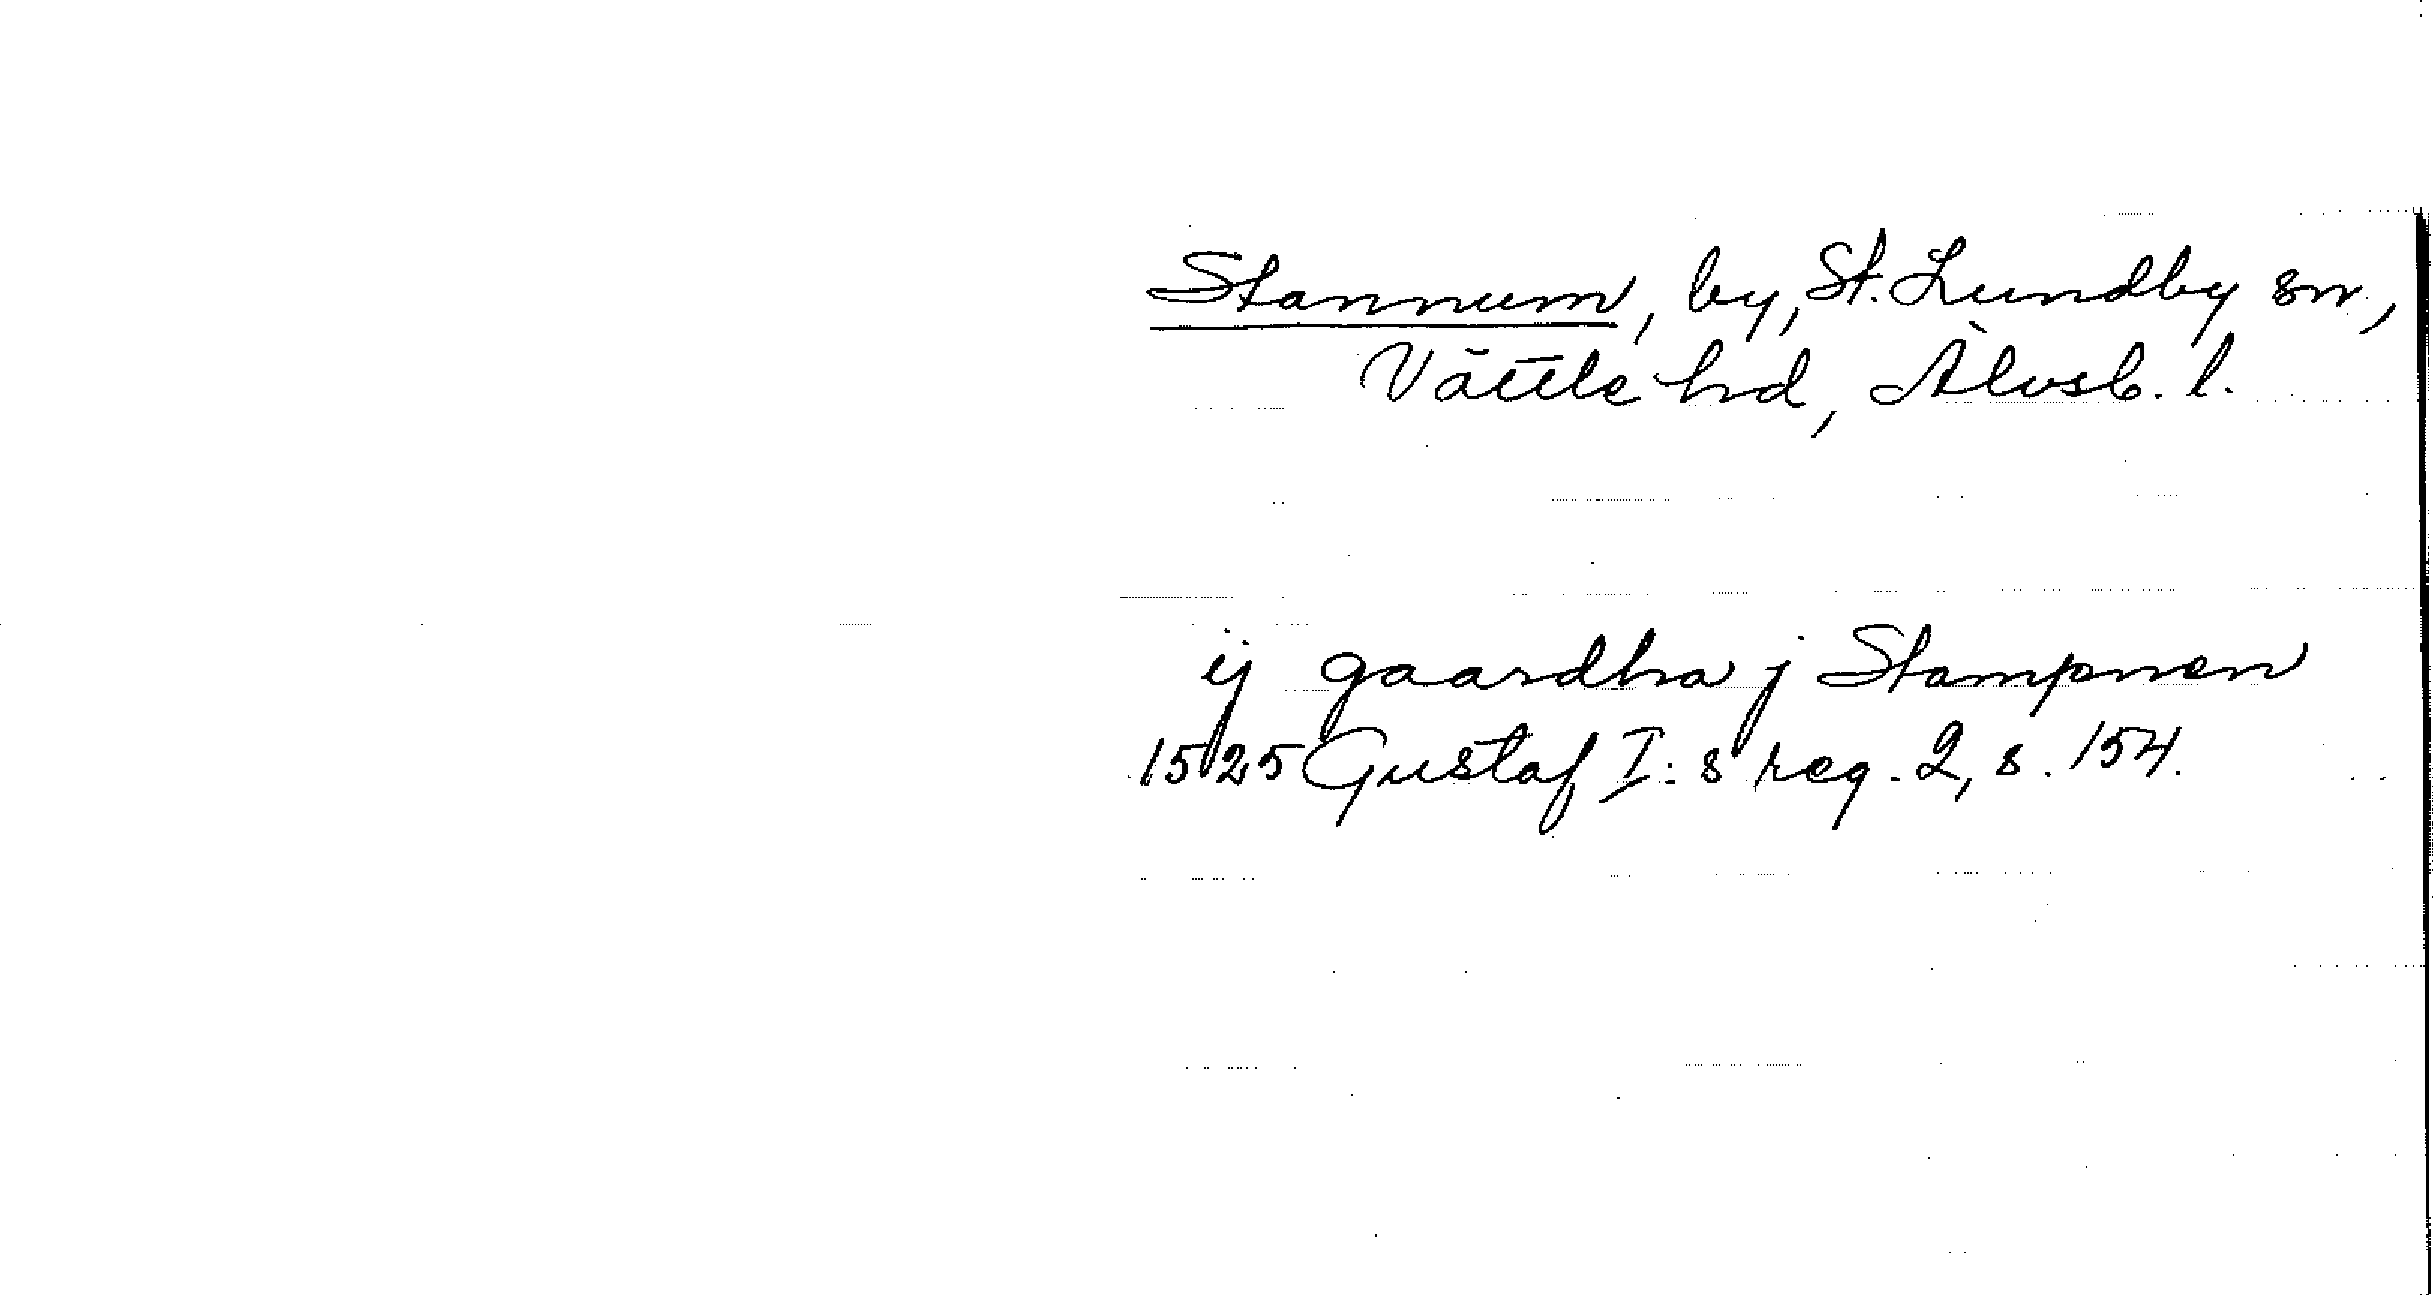 Stannum, by, St. Lundby sn.,
Vättle hd, Älvsb. l.
ij gaardha j Stampnen
1525 Gustaf I:s reg. 2, s. 154.